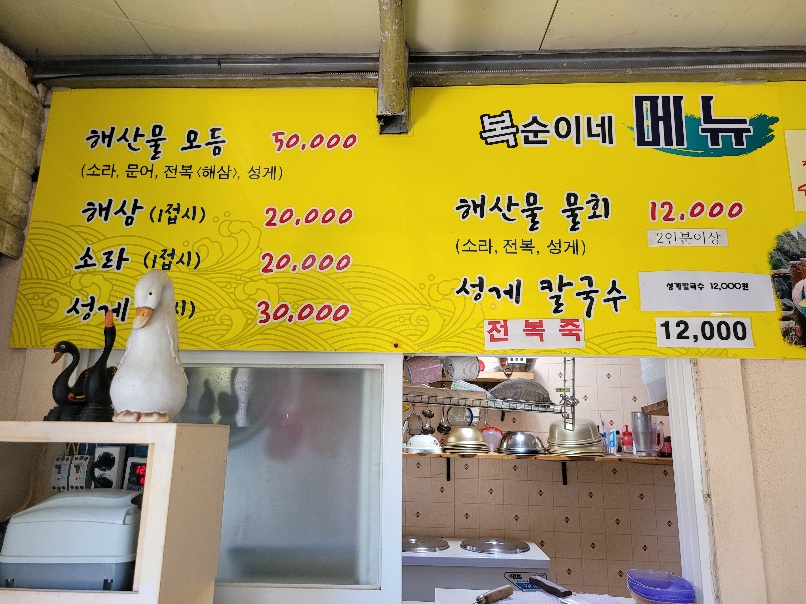 해산물 모듬 50,000
(소라, 문어, 전복〈해삼〉, 성게)
해삼 (1접시) 20,000
소라 (1접시) 20,000
성게 시) 30,000
복순이네 메뉴
해산물 물회 12,000
(소라, 전복, 성게)
2인분이상
성게 칼국수 성게칼국수 12,000원
전복죽 12,000